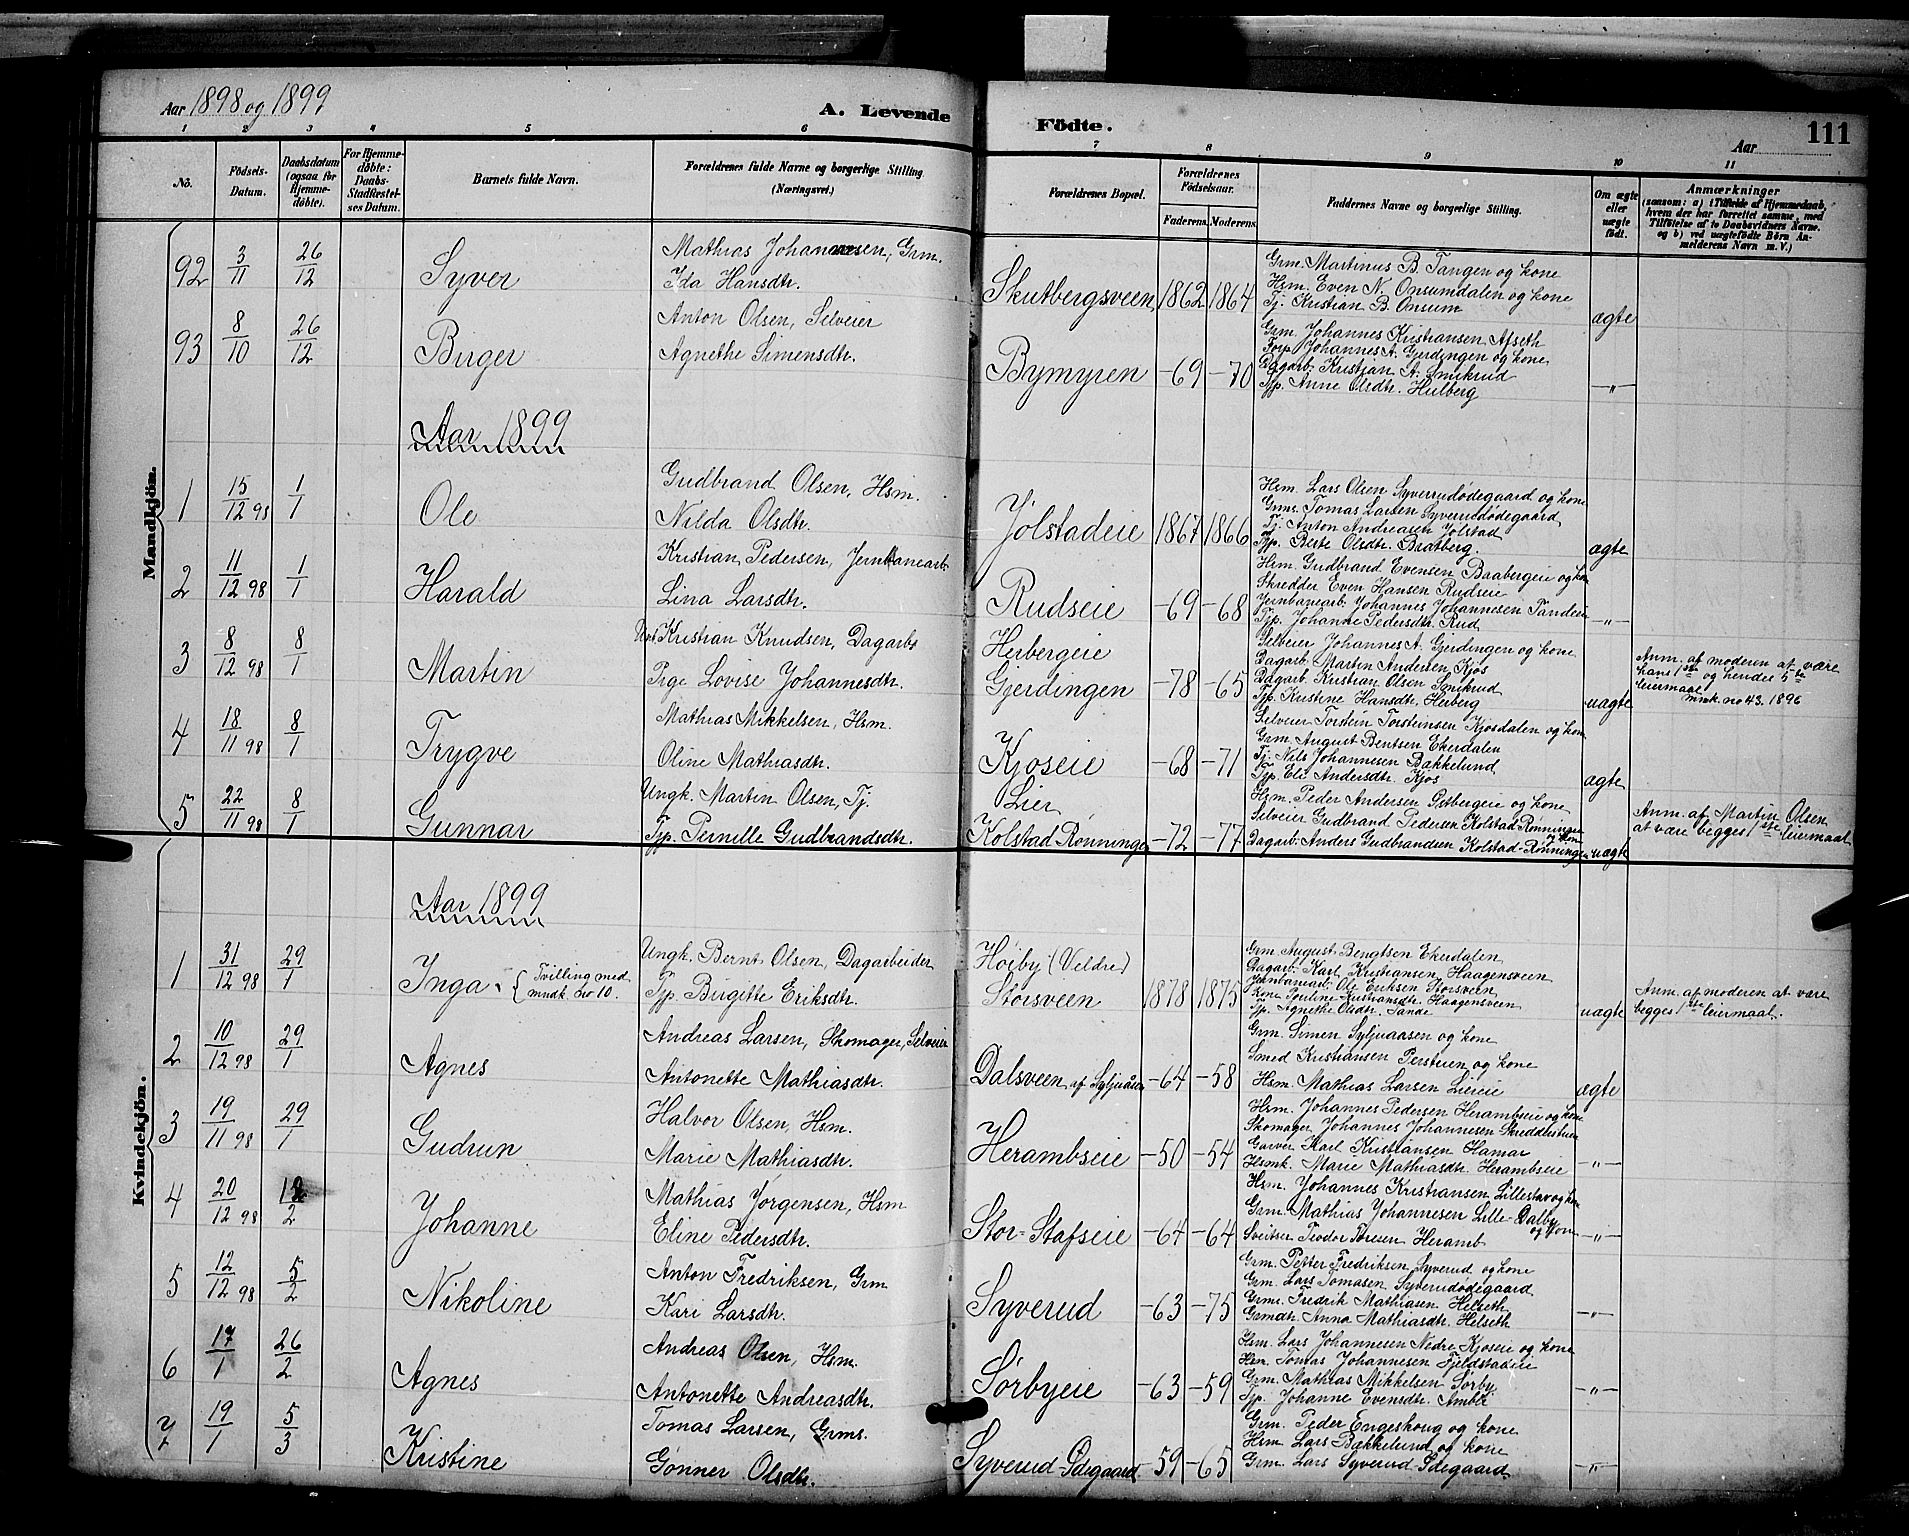 Aar 1898 og 1899
A. Levende Födte.
Aar
111
1 2 3 4 5 6 7 8 9 10 11
No.
Födsels-Datum.
Daabsdatum (ogsaa for Hjemme-döbte).
For Hjemme-döbte: Daabs-Stadfæstel-ses Datum.
Barnets fulde Navn.
Forældrenes fulde Navne og borgerlige Stilling (Næringsvei.)
Forældrenes Bopæl.
Forældrenes Födselsaar.
Faderens. Moderens.
Faddernes Navne og borgerlige Stilling.
Om ægte eller uægte födt.
Anmærkninger
(saasom: a) i Tilfælde af Hjemmedaab, hvem der har forrettet samme, med Tilföielse af to Daabsvidners Navne, og b) ved uægtefödte Börn An-melderens Navn m. V.)
Mandkjön.
92 3/11 26/12 Syver
Mathias Johannesen, Grm.
Ida Hansdtr.
Skutbergsveen 1862 1864
Grm. Martinus B. Tangen og kone
Hsm. Even N. Onsumdalen og kone
Tj. Kristian B. Onsum
ægte
93 8/10 26/12 Birger
Anton Olsen, Selveier
Agnethe Simensdtr.
Bymyren -69 -70
Grm. Johannes Kristiansen Afseth
Forp. Johannes A. Gjerdingen og kone
Dagarb. Kristian A. Smikrud
Tjp. Anne Olsdtr. Hulberg
-"-
Aar 1899
1 15/12 98 1/1 Ole
Gudbrand Olsen, Hsm.
Nilda Olsdtr.
Jølstadeie 1867 1866
Hsm. Lars Olsen Syverudødegaard og kone
Grms. Tomas Larsen Syverudødegaard
Tj. Anton Andreasen Jølstad
Tjp. Berte Olsdtr. Bratberg.
ægte
2 11/12 98 1/1 Harald
Kristian Pedersen, Jernbanearb.
Lina Larsdtr.
Rudseie -69 -68
Hsm. Gudbrand Evensen Baabergeie og kone
Skredder Even Hansen Rudseie
Jernbanearb. Johannes Johannesen Sandeen
Tjp. Johanne Pedersdtr. Rud
-"-
3 8/12 98 8/1 Martin
Ungk. Kristian Knudsen, Dagarb.
Pige Lovise Johannesdtr.
Herbergeie
Gjerdingen -78 -65
Selveier Johannes A. Gjerdingen og kone
Dagarb. Martin Andersen Kjos
Dagarb. Kristian Olsen Smikrud
Tjp. Kristine Hansdtr. Herberg
uægte
Anm. af moderen at være
hans 1ste og hendes 5te
leiermaal.
mnk. no 43. 1896
4 18/11 98 8/1 Trygve
Mathias Mikkelsen, Hsm.
Oline Mathiasdtr.
Kjoseie -68 -71
Selveier Torstein Torsteinsen Kjosdalen og kone
Grm. August Bentsen Ekerdalen
Tj. Nils Johannesen Bakkelund
Tjp. Eli Andersdtr. Kjos
ægte
5 22/11 98 8/1 Gunnar
Ungk. Martin Olsen, Tj.
Tjp. Pernille Gudbrandsdtr.
Lier
Kolstad Rønningen -72 -77
Hsm. Peder Andersen Østbergeie og kone
Selveier Gudbrand Pedersen Kolstad Rønningen og kone
Dagarb. Anders Gudbrandsen Kolstad-Rønningen
uægte
Anm. af Martin Olsen
at være begges 1ste leiermaal
Kvindekjön.
Aar 1899
1 31/12 98 29/1 Inga { Tvilling med
mndk. no 10.
Ungk. Bernt Olsen, Dagarbeider
Tjp. Birgitte Eriksdtr.
Høiby (Veldre)
Storsveen 1878 1875
Grm. August Bengtsen Ekerdalen
Dagarb. Karl Kristiansen Haagensveen
Jernbanearb. Ole Eriksen Storsveen
Kone Pauline Kristiansdtr. Haagensveen
Tjp. Agnethe Olsdtr. Sande
uægte
Anm. af moderen at være
begges 1ste leiermaal.
2 10/12 98 29/1 Agnes
Andreas Larsen, Skomager, Selveier
Antonette Mathiasdtr.
Dalsveen af Syljuåsen -64 -58
Grm. Simen Syljuaasen og kone
Smed Kristiansen Perstuen og kone
Hsm. Mathias Larsen Liereie
ægte
3 19/11 98 29/1 Gudrun
Halvor Olsen, Hsm.
Marie Mathiasdtr.
Herambseie -50 -54
Hsm. Johannes Pedersen Herambseie og kone
Skomager Johannes Johannesen Skredderstuen
Garver Karl Kristiansen Hamar
Hsmk. Marie Mathiasdtr. Herambseie
-"-
4 20/12 98 12/2 Johanne
Mathias Jørgensen, Hsm
Eline Pedersdtr.
Stor-Stafseie -64 -64
Hsm. Johannes Kristiansen Lillestav og kone
Grm. Mathias Johannesen Lille-Dalby og kone
Sveitser Teodor Toresen Heramb
-"-
5 12/12 98 5/2 Nikoline
Anton Fredriksen, Grm
Kari Larsdtr.
Syverud -63 -75
Grm. Petter Fredriksen Syverud og kone
Grm. Lars Tomasen Syverudødegaard
Grms. Fredrik Mathiasen Helseth
Grmdtr. Anna Mathiasdtr. Helseth
-"-
6 17/1 26/2 Agnes
Andreas Olsen, Hsm.
Antonette Andreasdtr.
Sørbyeie -63 -59
Hsm. Lars Johannesen Nedre Kjoseie og kone
Hsm. Tomas Johannesen Fjeldstadeie
Grm. Mathias Mikkelsen Sørby
Tjp. Johanne Evensdtr. Ambli
-"-
7 19/1 5/3 Kristine
Tomas Larsen, Grms.
Gønner Olsdtr.
Syverud-Ødegaard -59 -65
Grm. Peder Engeshoug og kone
Hsm. Lars Bakkelund og kone
Grm. Lars Syverud-Ødegaard
-"-